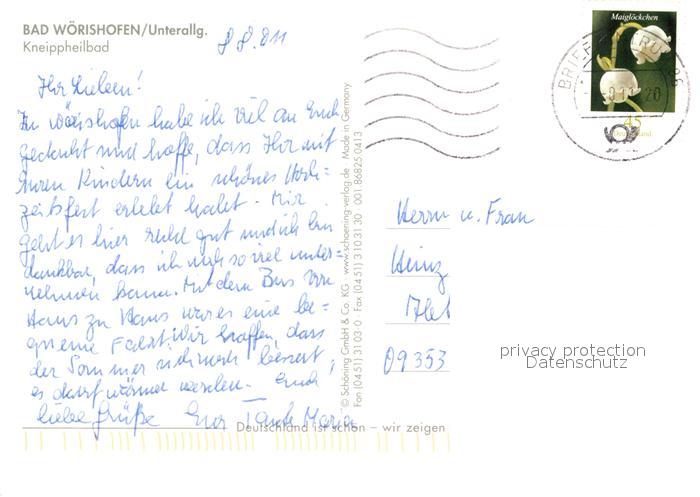 BAD WÖRISHOFEN/Unterallg.
Kneippheilbad
8.8.011
Ihr Lieben!
In Wörishofen habe ich viel an Euch
gedacht und hoffe, dass Ihr mit
Euren Kindern ein schönes Hoch-
zeitsfest erlebt habt. Mir
geht es hier recht gut und ich bin
dankbar, dass ich noch so viel unter-
nehmen kann. Mit dem Bus von
Haus zu Haus war es eine be-
queme Fahrt. Wir hoffen, dass
der Sommer sich noch bessert,
es darf wärmer werden.
liebe Grüße Eure Tante Maria
© Schöning GmbH & Co. KG · www.schoening-verlag.de Made in Germany
Fon (04 51) 31 03-0 · Fax (04 51) 3 10 31 30 001 86825 0413
Maiglöckchen
45
Deutschland
BRIEFZENTRUM 86
20
Herrn u. Frau
Heinz
09353
privacy protection
Datenschutz
Deutschland ist schön – wir zeigen